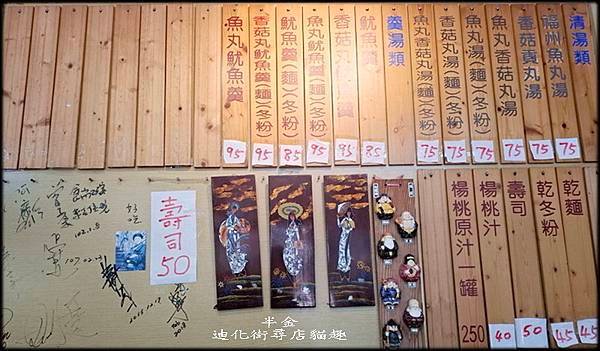 清湯類
福州魚丸湯 75
香菇貢丸湯 75
魚丸香菇丸湯 75
魚丸湯(麵)(冬粉) 75
香菇丸湯(麵)(冬粉) 75
魚丸香菇丸湯(麵)(冬粉) 75
羹湯類
魷魚羹 85
香菇丸羹 95
魚丸魷魚羹(麵)(冬粉) 95
魷魚羹(麵)(冬粉) 85
香菇丸魷魚羹(麵)(冬粉) 95
魚丸魷魚羹 95
乾麵 45
乾冬粉 45
壽司 50
楊桃汁 40
楊桃原汁一罐 250
壽司
50
102.1.8
107.02.13
2015.12.17
半金
迪化街尋店貓趣